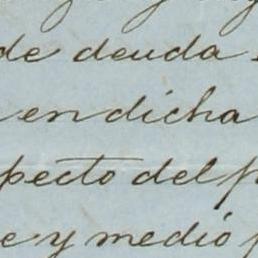 de deuda
en dicha
pecto del
e y medio